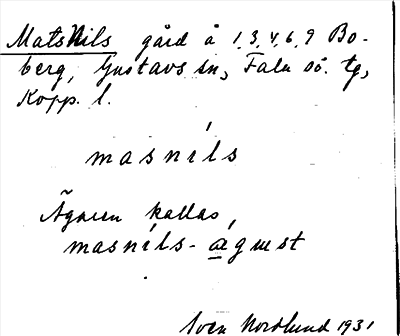 MatsNils gård å 1, 3, 4, 6, 9 Bo-
berg, Gustavs sn, Falu sö. tg,
Kopp. l.
masníls
Ägaren kallas,
masníls-águst
Sven Nordlund 1931